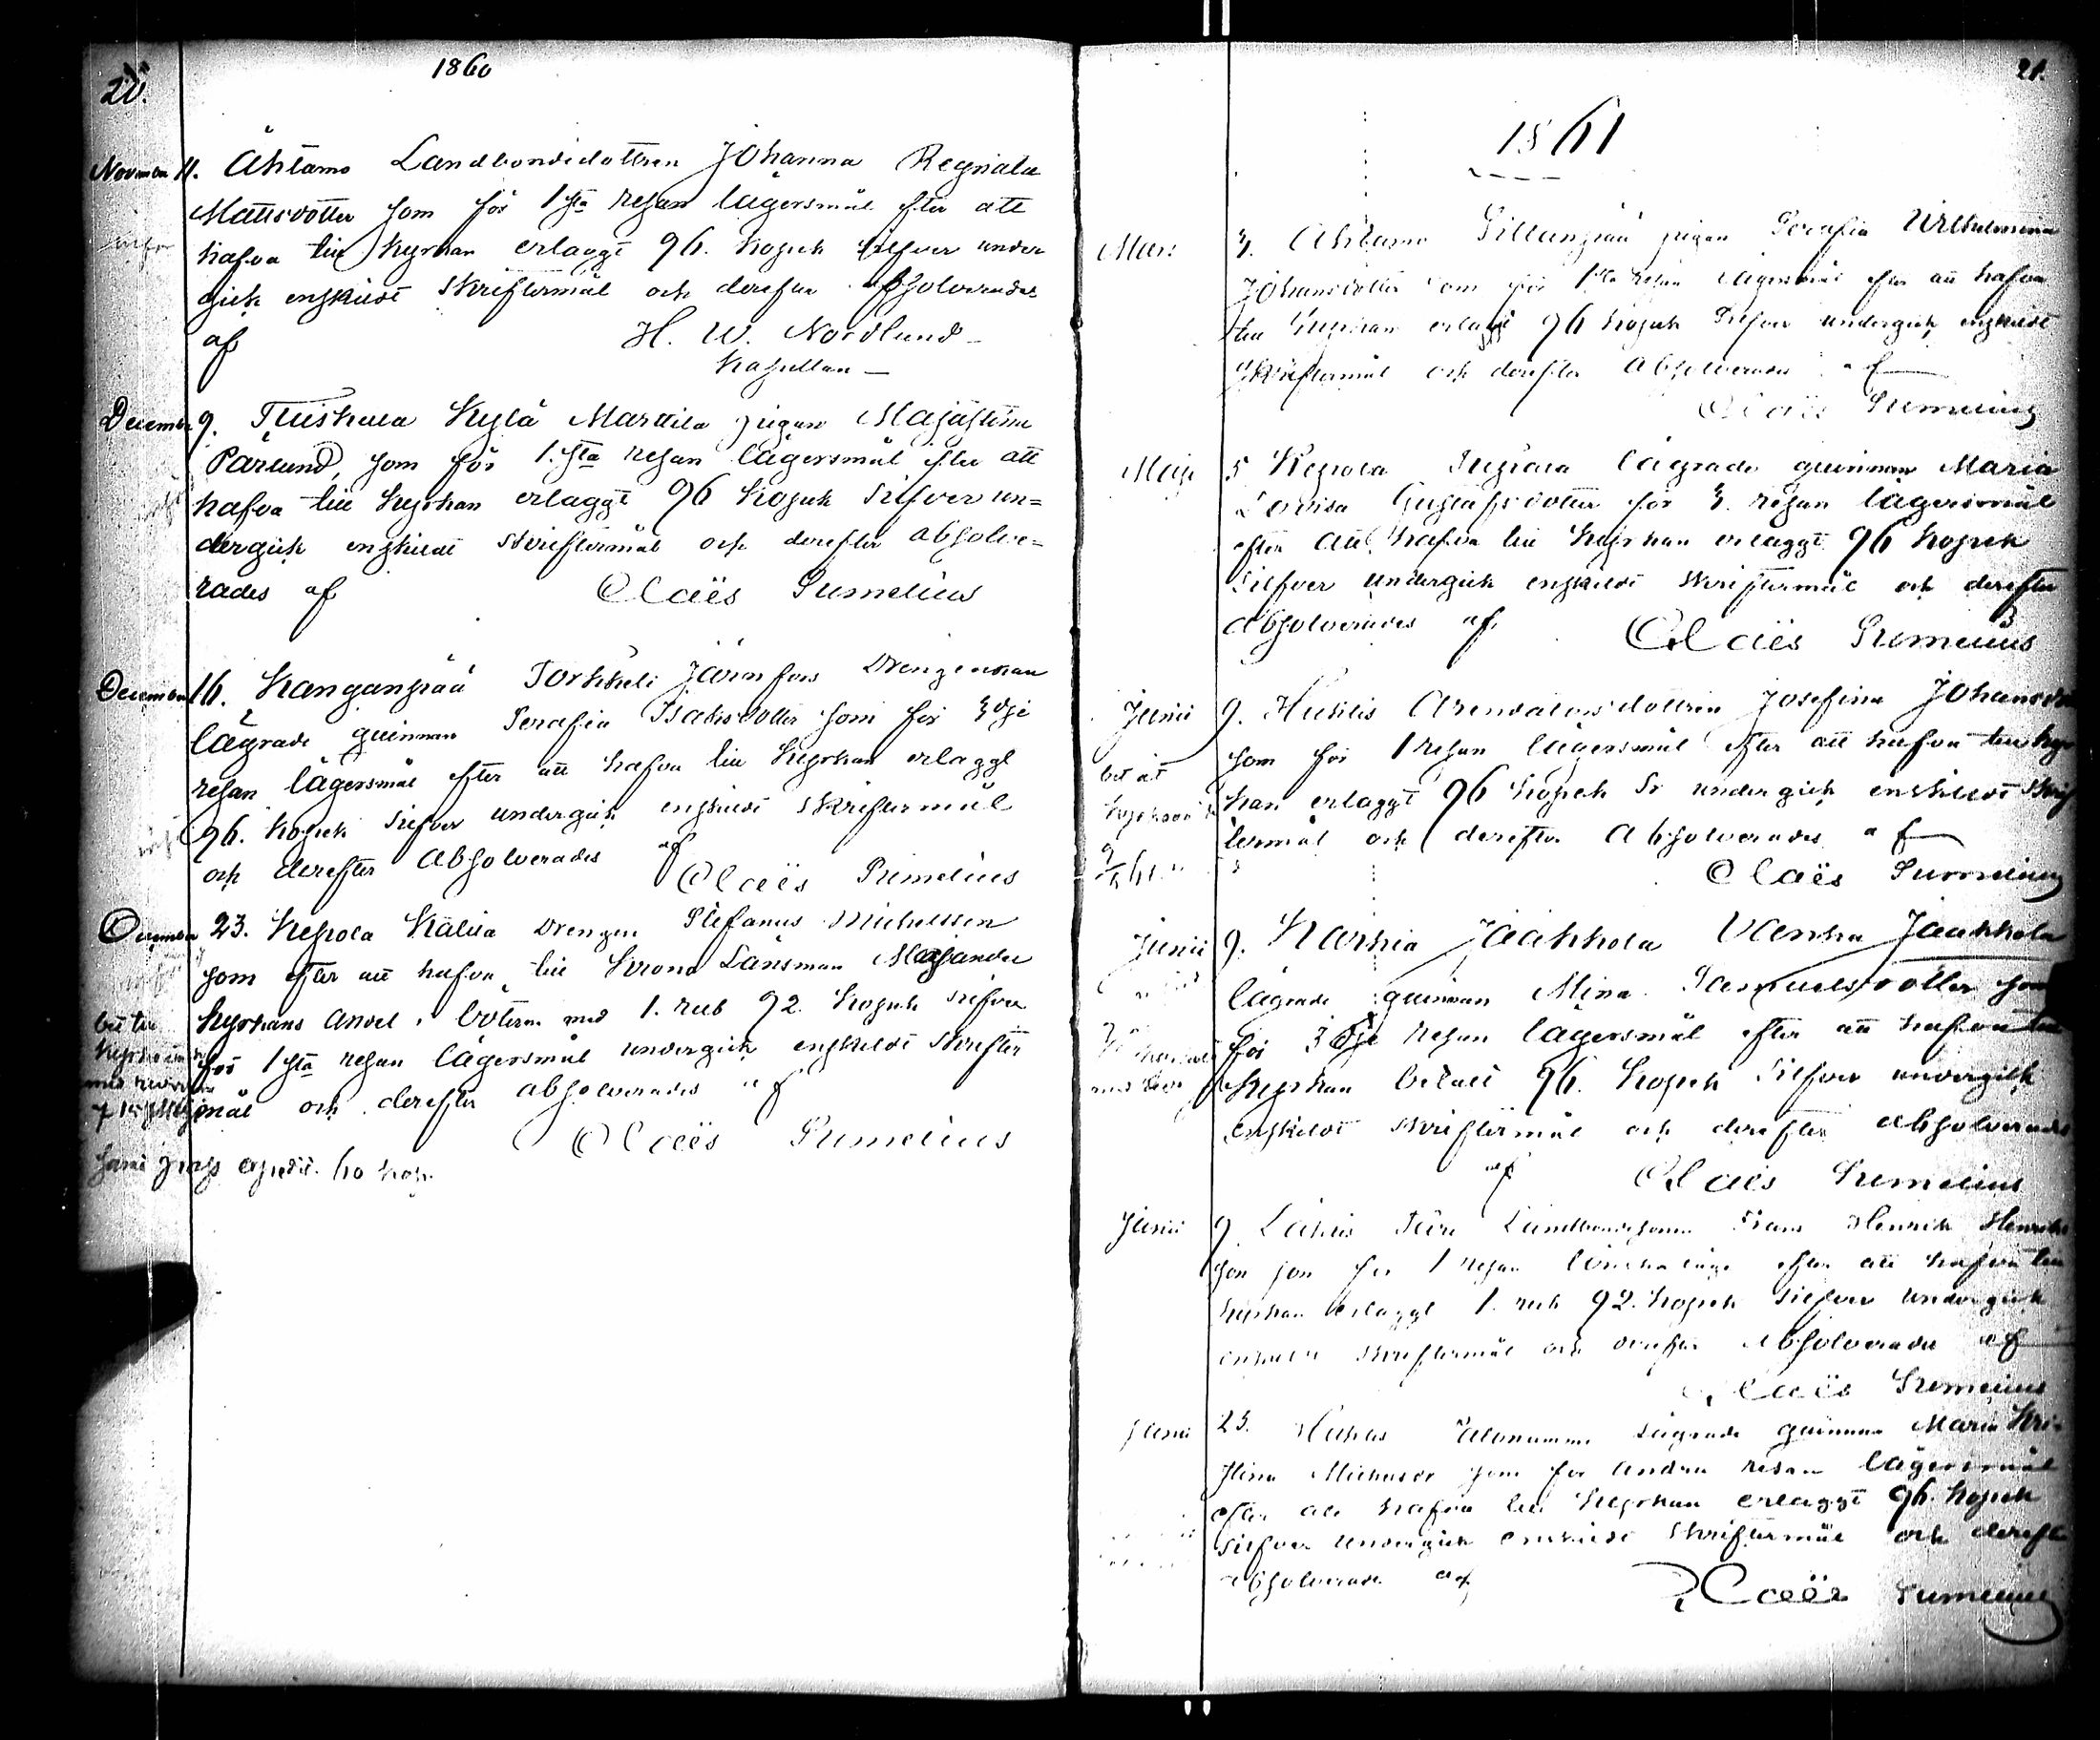 20.
1860
November 11. Åhtamo Landbondedottren Johanna Regina
Mattsdotter som för 1sta resan lägersmål efter att
hafva till Kyrkan erlaggt 96. kopek silfver under
gick enskildt Skriftermål och derefter absolverades
af H. W. Nordlund
Kapellan
December 9. Kylä Marttila pigan Maja Stina
Pärlund, som för 1.sta resan lägersmål efter att
hafva till kyrkan erlaggt 96 kopek silfver un=
dergick enskildt skriftermål och derefter absolve=
rades af Claës Sumelius
December 16. Kanganpää Torkkeli Järnfors Drengenkan
lägrade qvinnan Serafia Isaksdotter som för 3dje
resan lägersmål efter att hafva till Kyrkan erlaggt
96. kopek silfver undergick enskildt skriftermål
och derefter absolverades af
Claës Sumelius
December 23. Kepola Kälviä drengen Stefanus Michelsson
som efter att hafva till Krono Länsman
Kyrkans andel i böterne med 1. rub 92. kopek silfver
för 1sta resan lägersmål undergick enskildt skrifter
mål och derefter absolverades af
Claës Sumelius
60 kop.
21.
1861
Mars 3. Åhtamo pigan Serafia Wilhelmina
Johansdotter som för 1sta resan lägersmål efter att hafva
till Kyrkan erlaggt 96 kopek Silfver undergick enskildt
skriftermål och derefter absolverades af
Claës Sumelius
Maji 5 Kepola lägrade qvinnan Maria
Lovisa Gustafsdotter för 3. resan lägersmål
efter att hafva till Kyrkan erlaggt 96 kopek
silfver undergick enskildt skriftermål och derefter
absolverades af Claës Sumelius
Junii 9. Huhtis dottren Josefina
som för 1 resan lägersmål efter att hafva till kyr
kan erlaggt 96 kopek Sr undergick enskildt skrif
termål och derefter absolverades af
Claës Sumelius
Junii 9. Karhia Jaakkola Vanha Jaakkola
lägrade qvinnan Mina Samuelsdotter som
för 3dje resan lägersmål efter att hafva till
Kyrkan betalt 96. kopek silfver undergick
enskildt skriftermål och derefter absolverades
af Claës Sumelius
Junii 9 Landbondesonen Frans Henrik Henriks
son som för 1 resan efter att hafva till
kyrkan erlaggt 1. rub 92. kopek silfver undergick
enskildt skriftermål och derefter absolverades af
Claës Sumelius
Junii 23. lägrade qvinnan Maria Kri-
stina som för andra resan lägersmål
efter att hafva till Kyrkan erlaggt 96. kopek
silfver undergick enskildt skriftermål och derefter
absolverades af Claës Sumelius